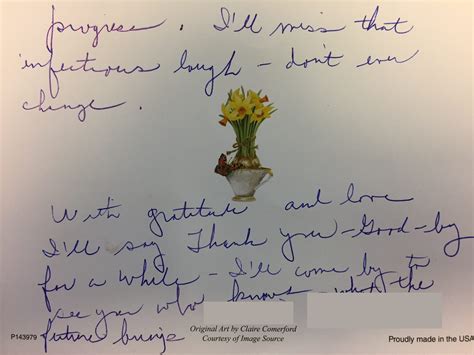 progress. I'll miss that
infectious laugh - don't ever
change.
With gratitude and love
I'll say Thank you - Good-by
for a while - I'll come by to
see you who knows what the
future brings
Original Art by Claire Comerford
Courtesy of Image Source
P143979
Proudly made in the US